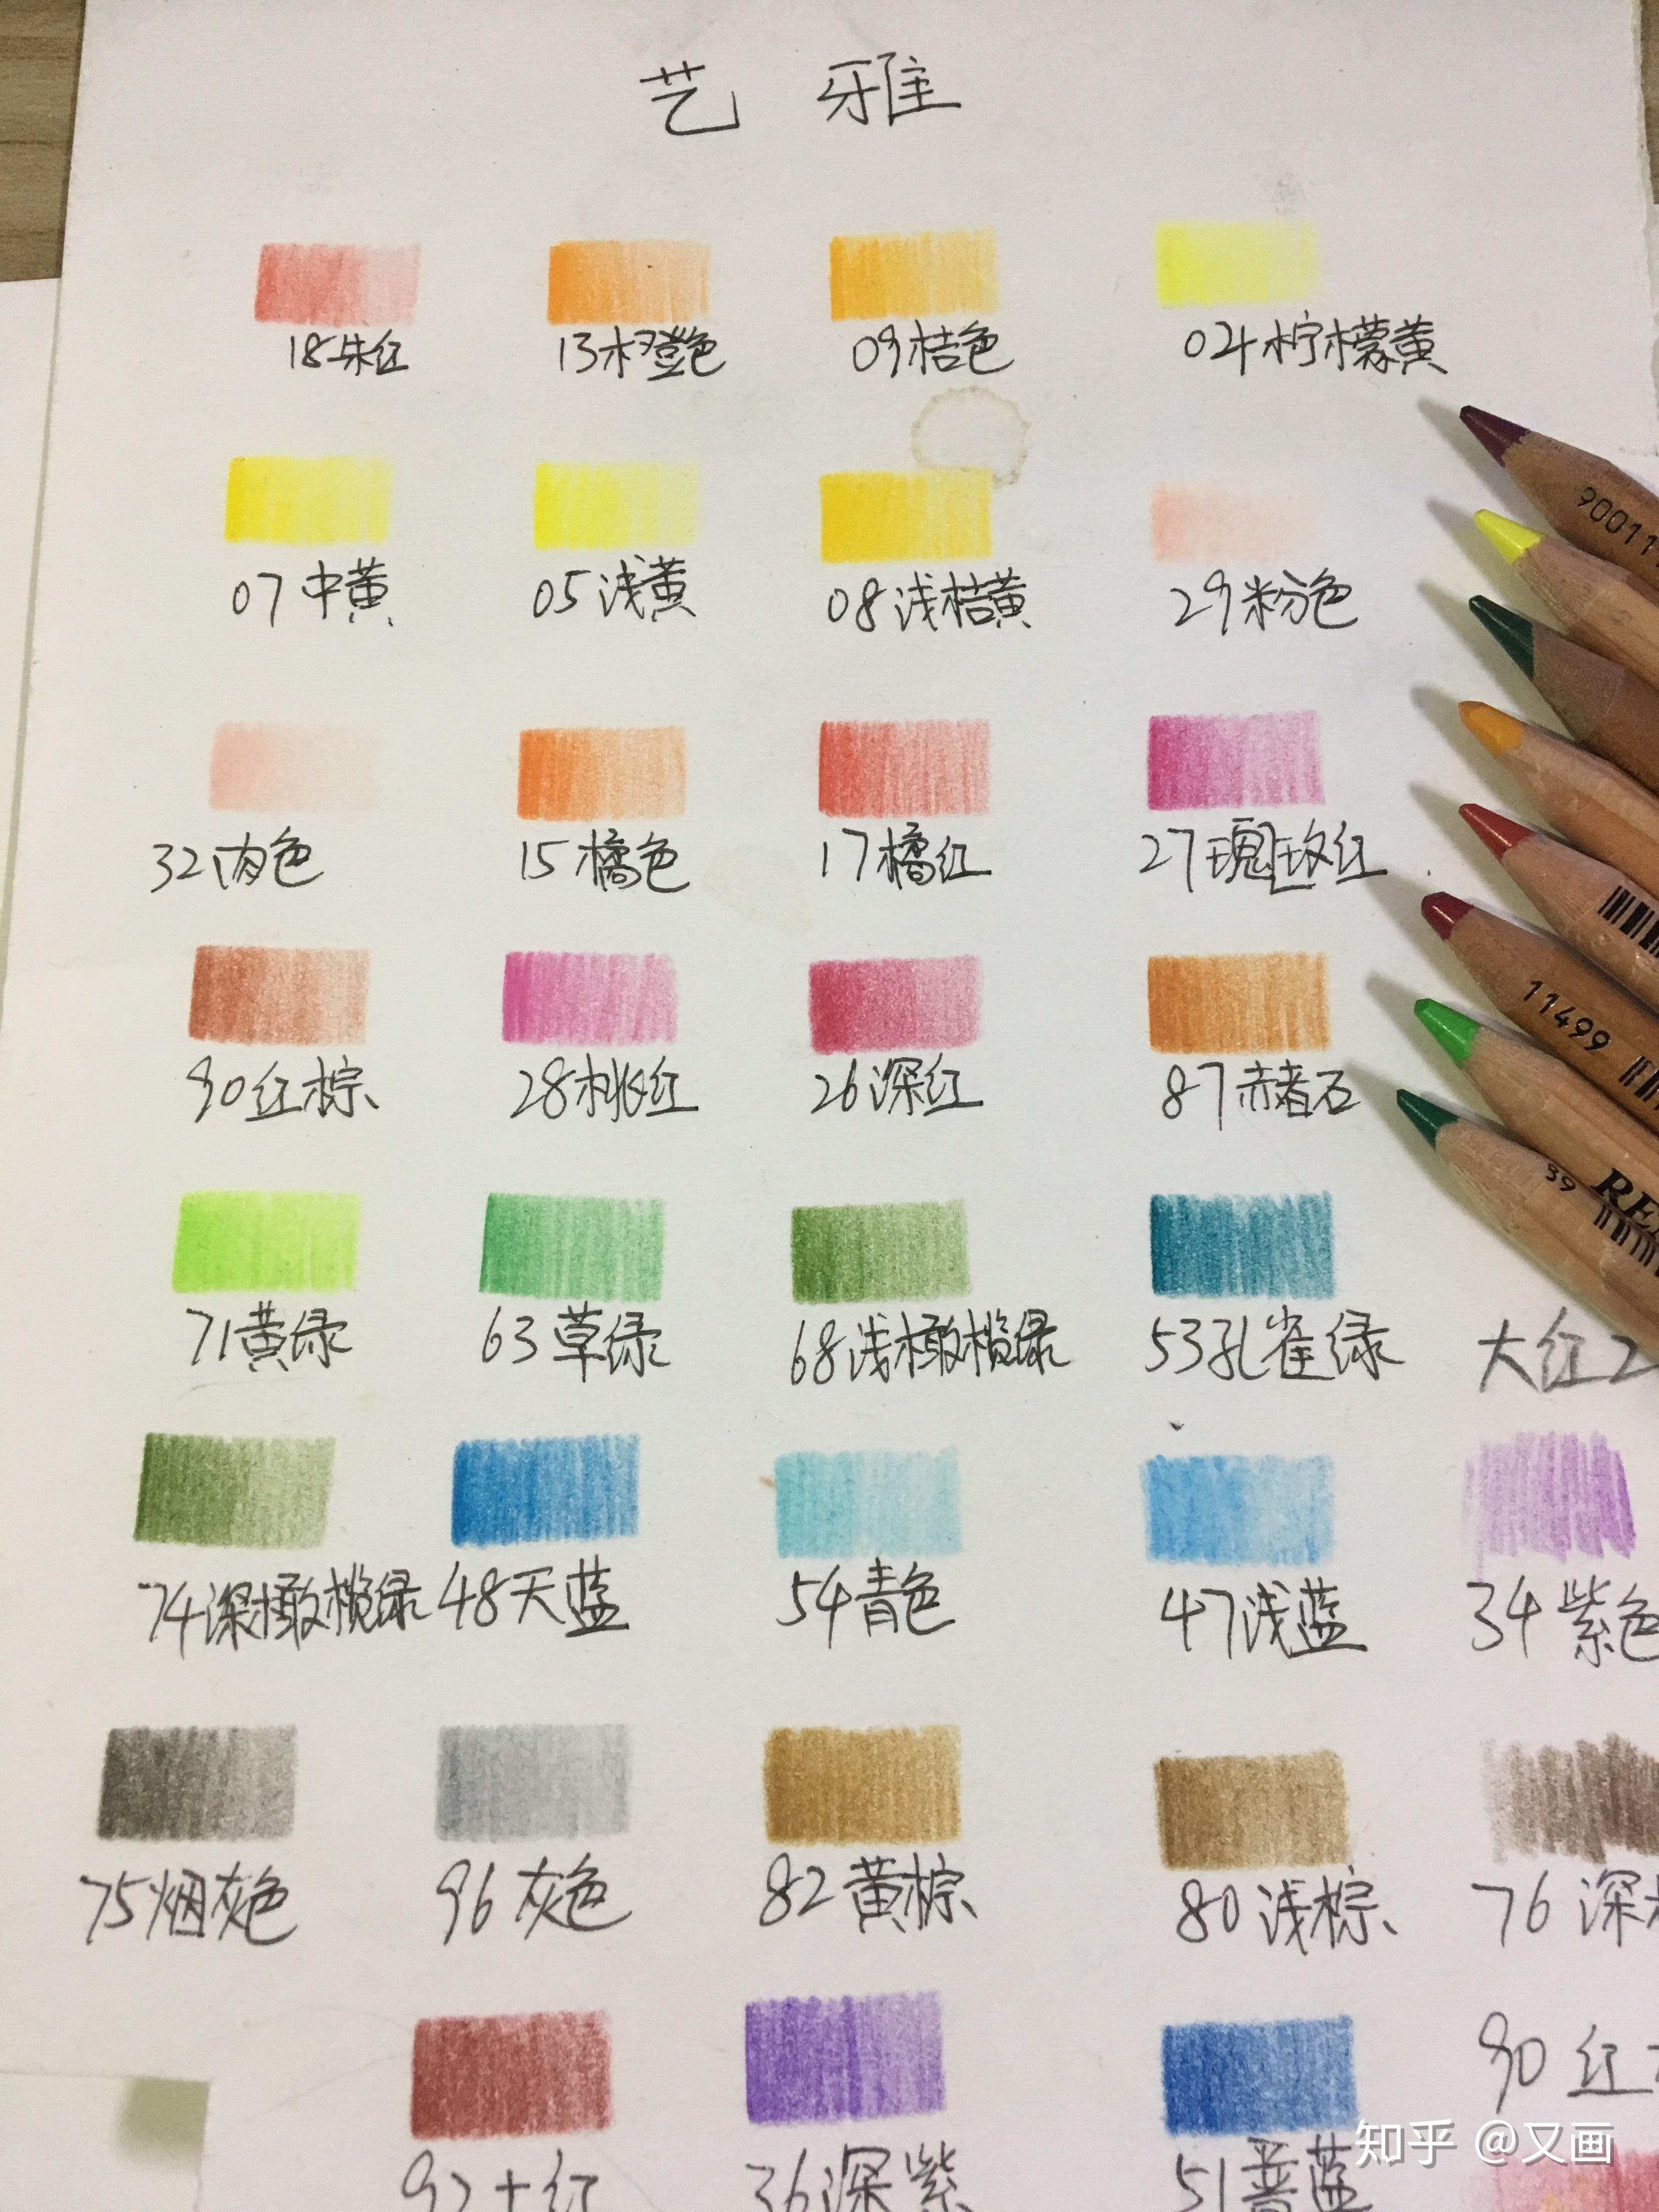 艺 雅
18朱红 13橙色 09桔色 02柠檬黄
07中黄 05浅黄 08浅桔黄 29粉色
32肉色 15橘色 17橘红 27瑰玫红
90红棕 28桃红 26深红 87赤赭石
71黄绿 63草绿 68浅橄榄绿 53孔雀绿 大红2
74深橄榄绿 48天蓝 54青色 47浅蓝 34紫色
75烟灰色 96灰色 82黄棕 80浅棕 76深
90红
92土红 36深紫 51普蓝
90011
11499
39
RE
知乎 @又画